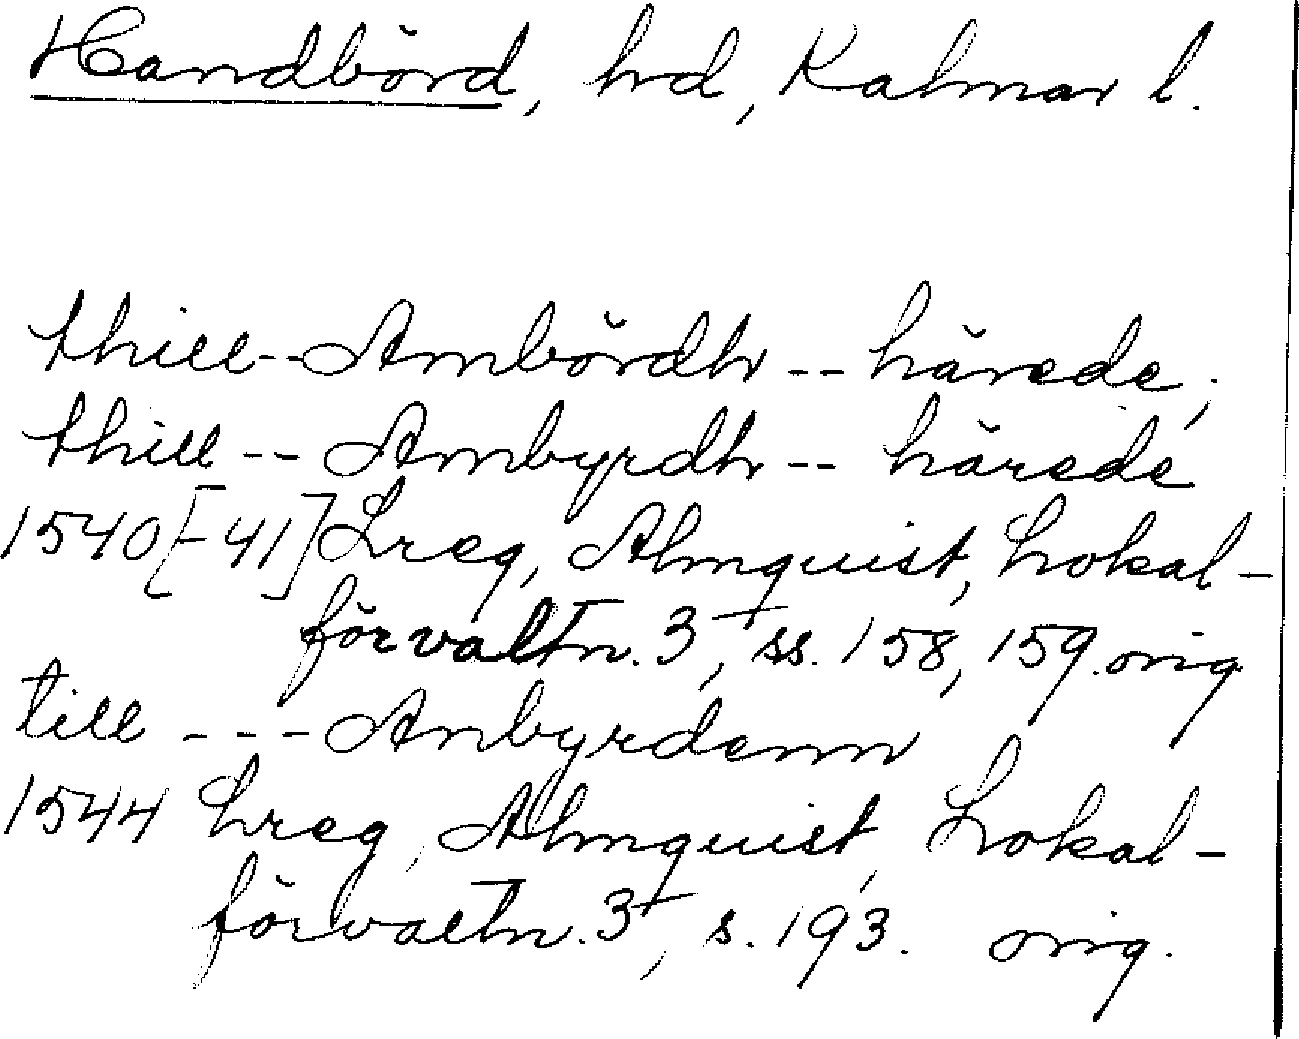 Handbörd, hd, Kalmar l.
thill -- Ambördh -- härede;
thill -- Ambyrdh -- härede
1540[-41] Lreg, Almquist, Lokal-
förvaltn. 3, ss. 158, 159. orig
till --- Anbyrdenn
1544 Lreg, Almquist, Lokal-
förvaltn. 3, s. 193. orig.